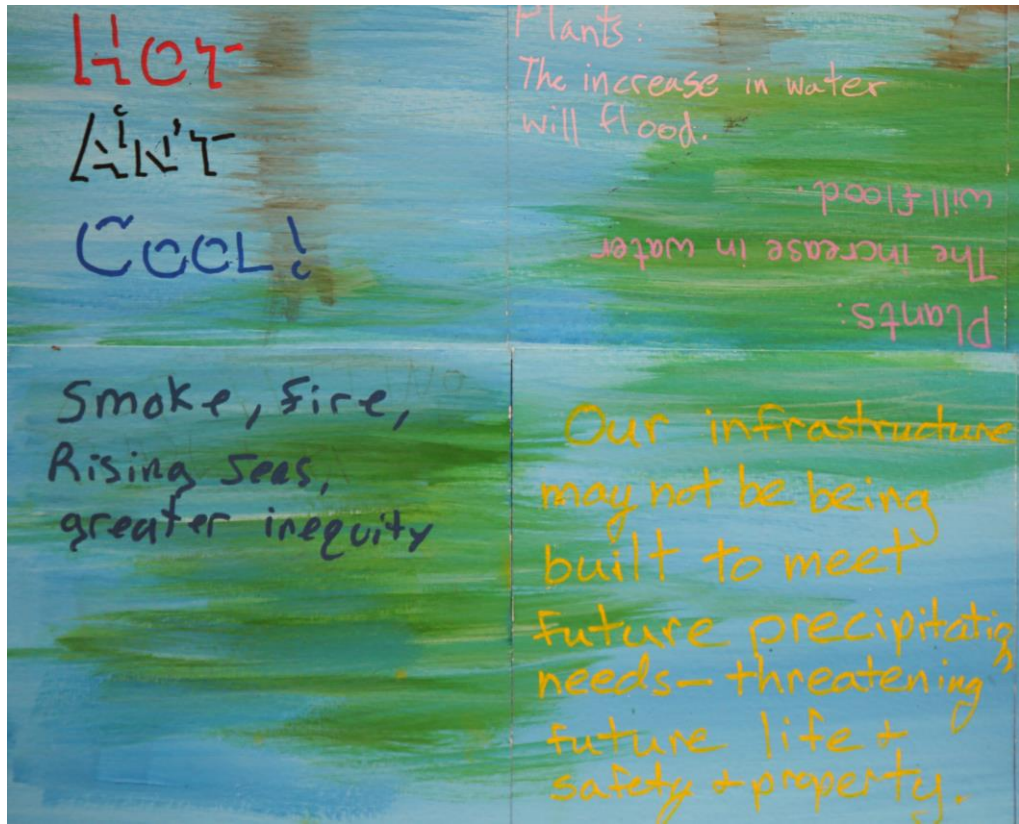 Hot
Ain't
Cool!
Plants:
The increase in water
will flood.
Plants:
The increase in water
will flood.
Smoke, fire,
Rising Seas,
greater inequity
Our infrastructure
may not be being
built to meet
future precipitation
needs - threatening
future life +
safety + property.